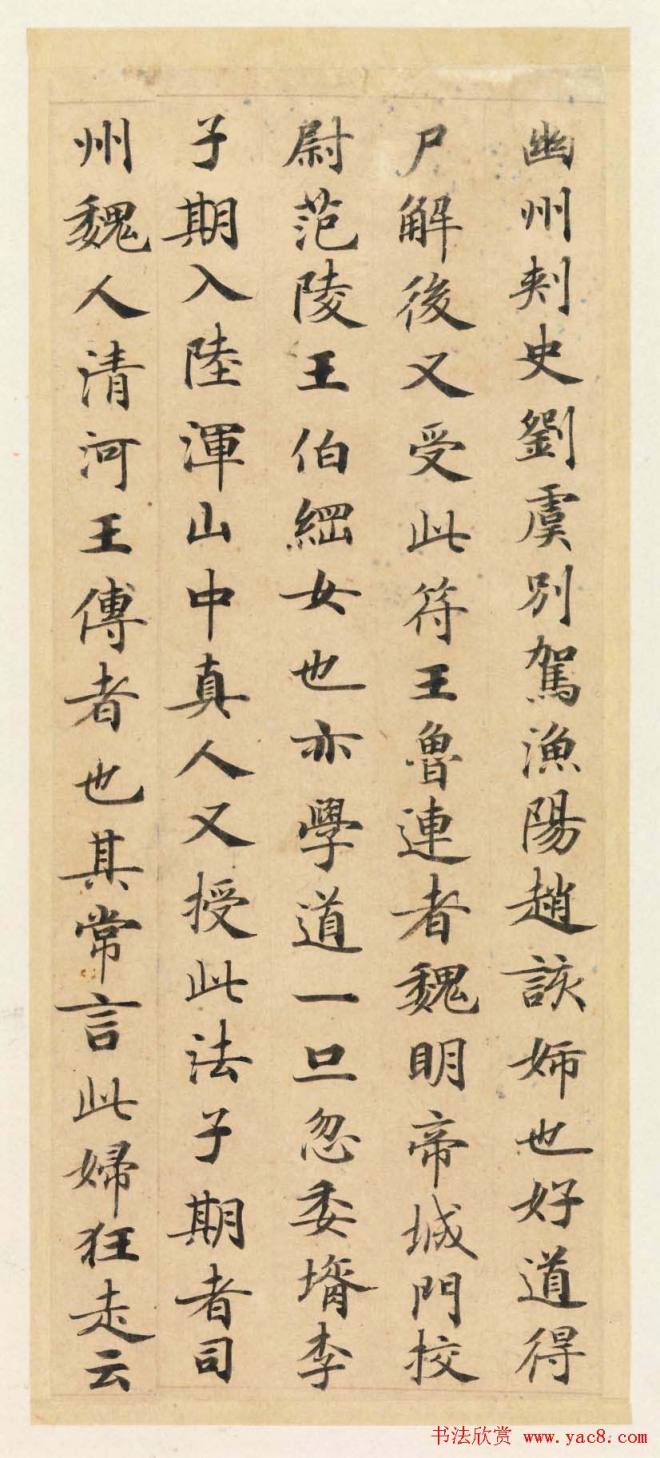 幽州刾史劉虞別駕漁陽趙該姊也好道得
尸解後又受此符王魯連者魏明帝城門挍
尉范陵王伯綱女也亦學道一旦忽委壻李
子期入陸渾山中真人又授此法子期者司
州魏人清河王傅者也其常言此婦狂走云
书法欣赏 www.yac8.com